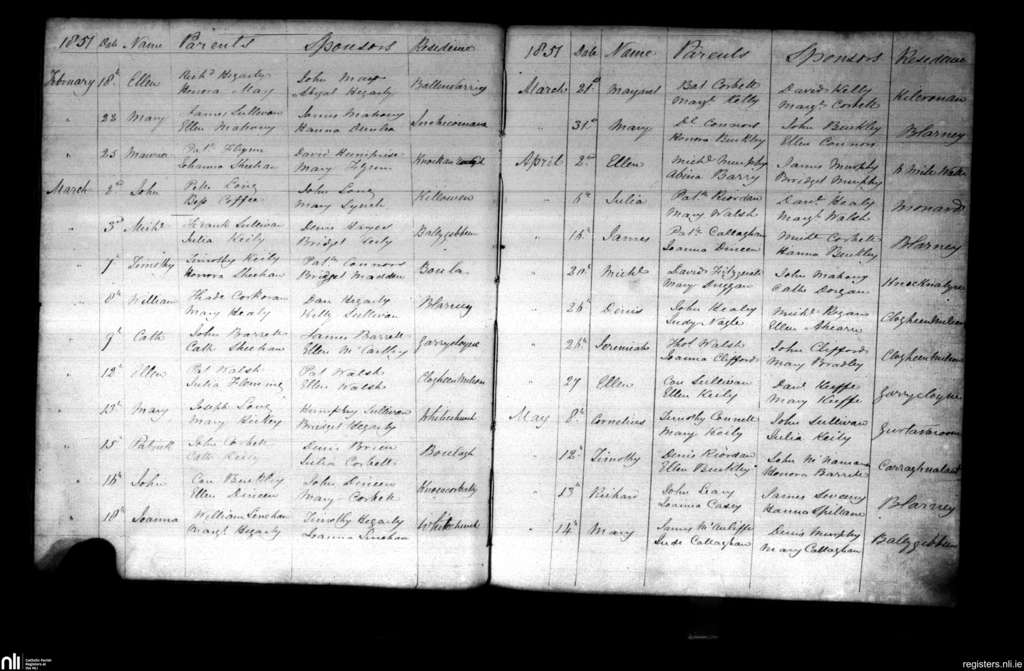 1851 Date Name Parents Sponsors Residence
February 18th Ellen Richd Hegarty John May Ballensorriny
Honora May Abigal Hegarty
" 23 Mary James Sullivan James Mahony
Ellen Mahony Hanna
" 25 Pat Flynn David Humphries
Johanna Sheehan Mary Flynn
March 2nd John Peter Long John Long Killowen
Bess Coffee Mary Lynch
" 3rd Michl Frank Sullivan Denis Hayes Ballygibben
Julia Keily Bridget
" 7th Timothy Timothy Keily Patk Connors Boula
Honora Sheehan Bridget Madden
" 8th William Thade Corkoran Dan Hegarty Blarney
Mary Healy Kelly Sullivan
" 9th Cath John Barrett James Barrett Garrycloyne
Cath Sheehan Ellen McCartley
" 12th Ellen Pat Walsh Pat Walsh Clogheen Milcon
Julia Fleming Ellen Walsh
" 13th Mary Joseph Long Humphry Sullivan Whitechurch
Mary Hickey Bridget Hegarty
" 15th Patrick John Corbett Denis Brien Boulagh
Cath Keily Julia Corbett
" 16th John Con Buckley John Dineen
Ellen Dineen Mary Corbett
" 18th Joanna William Linehan Timothy Hegarty Whitechurch
Margt Hegarty Joanna Linehan
1851 Date Name Parents Sponsors Residence
March 28th Margaret Bat Corbett David Kelly Kilcronan
Margt Kelly Margt Corbett
" 31st Mary Dl Connors John Buckley Blarney
Honora Buckley Ellen Connors
April 2nd Ellen Michl Murphy James Murphy 6 Mile Water
Abina Barry Bridget Murphy
" 6th Julia Patk Riordan Danl Healy Monard
Mary Walsh Margt Walsh
" 15th James Patk Callaghan Michl Corbett Blarney
Joanna Dineen Hanna Buckley
" 20th Michl David Fitzgerald John Mahony
Mary Duggan Cath Dorgan
" 25th Denis John Healy Michl Regan Clogheen Milcon
Judy Nagle Ellen Ahearn
" 25th Jeremiah Thos Walsh John Clifford Clogheen Milcon
Joanna Clifford Mary Bradley
" 27 Ellen Con Sullivan Danl Keeffe Garrycloyne
Ellen Keily Mary Keeffe
May 8th Cornelius Timothy Connell John Sullivan
Mary Keily Julia Keily
" 12th Timothy Denis Riordan John McNamara
Ellen Buckley Honora Barrett
" 13th Richard John Leary James Blarney
Joanna Casey Hanna Spillane
" 14th Mary James McAuliffe Denis Murphy Ballygibben
Jude Callaghan Mary Callaghan
nli Catholic Parish Registers at the NLI
registers.nli.ie